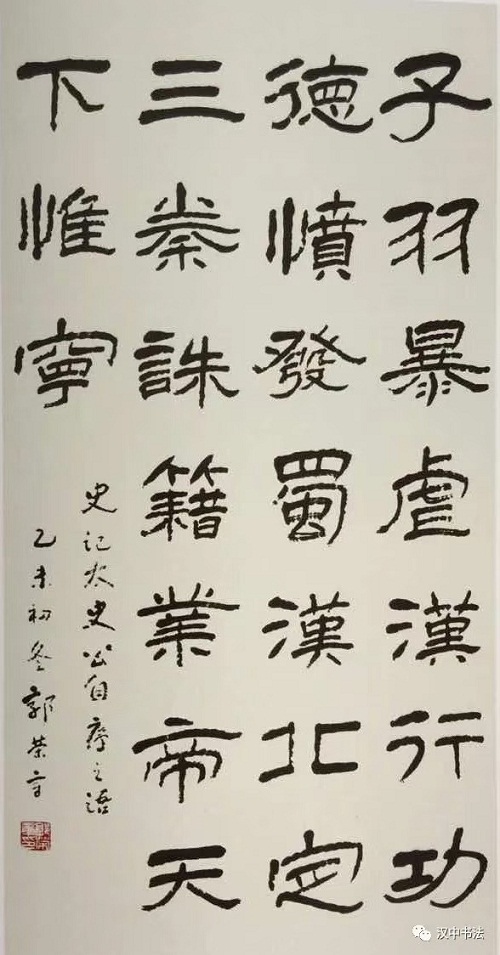 子羽暴虐漢行功
德憤發蜀漢北定
三秦誅籍業帝天
下惟寧
史記太史公自序之語
乙未初冬郭榮章
汉中书法